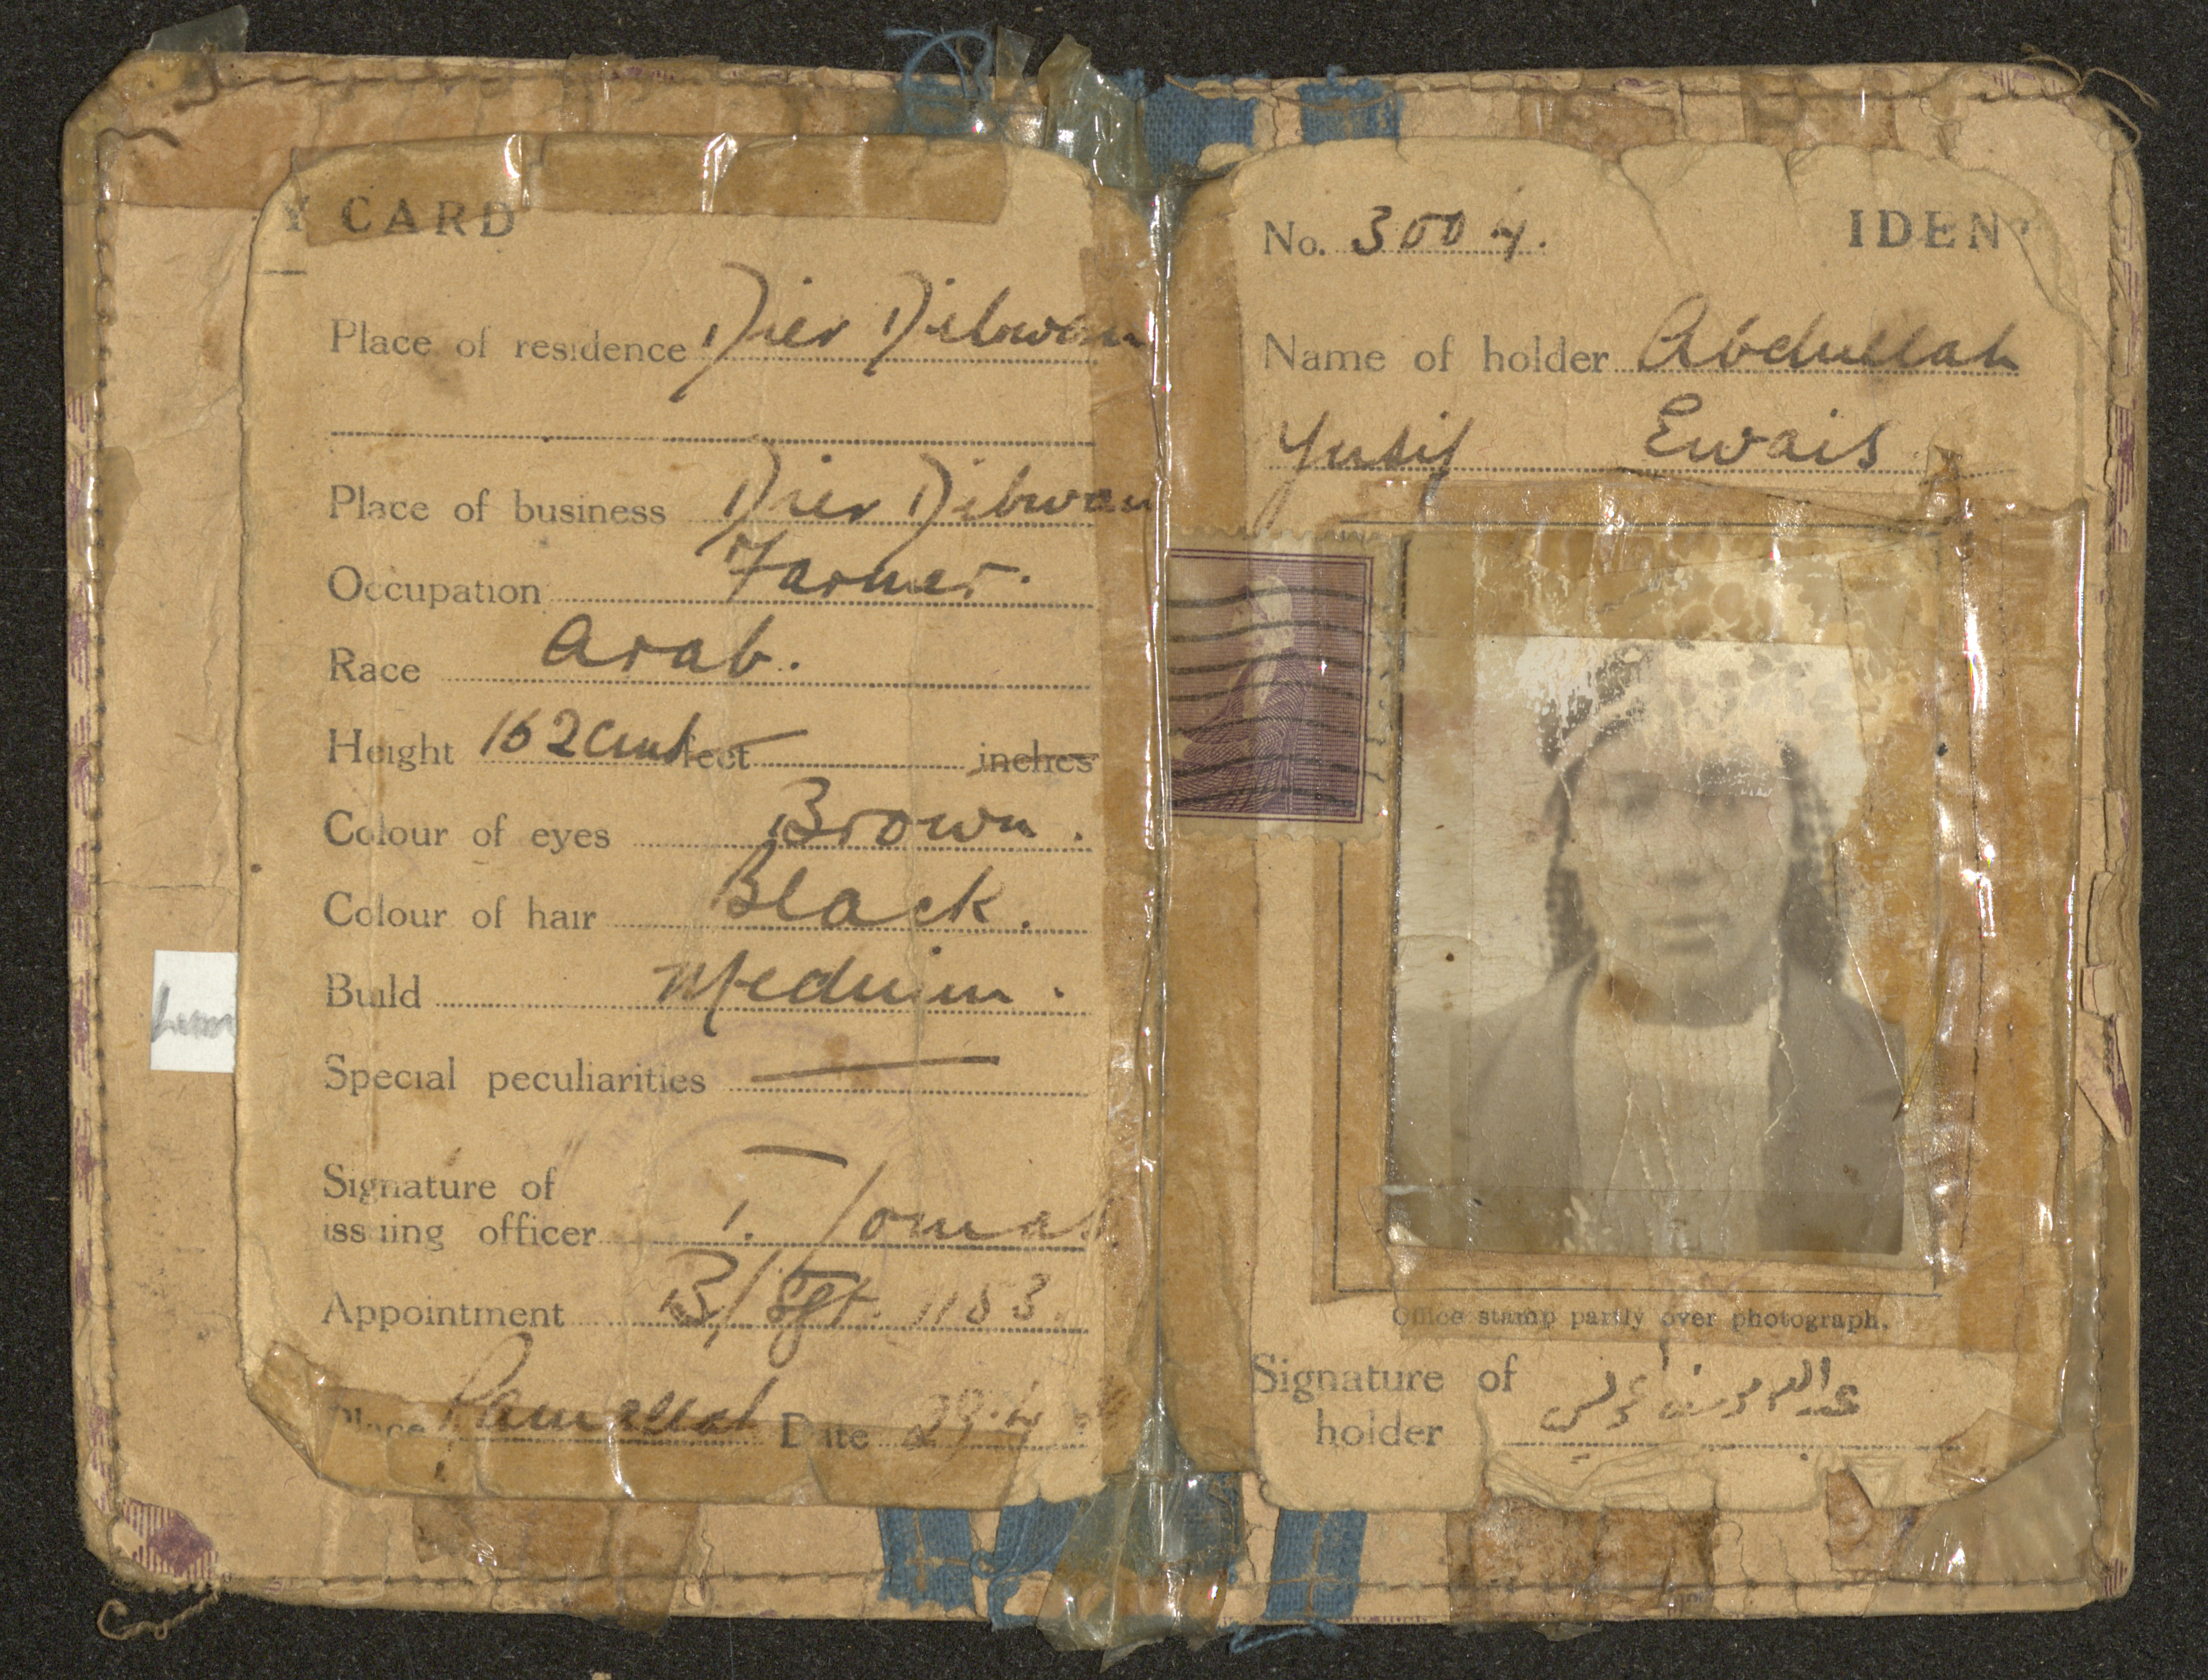 Y CARD
Place of residence Dier Dibwan
Place of business Dier Dibwan
Occupation Farmer.
Race Arab.
Height 162 cms feet inches
Colour of eyes Brown.
Colour of hair Black.
Build Medium.
Special peculiarities —
Signature of
issuing officer T. Tomas
Appointment B/Sgt. 1153.
Place Ramallah Date 29.4
No. 3004.
IDENT
Name of holder Abdullah
Yusif Ewais
Office stamp partly over photograph.
Signature of
holder عبدالله يوسف عويس